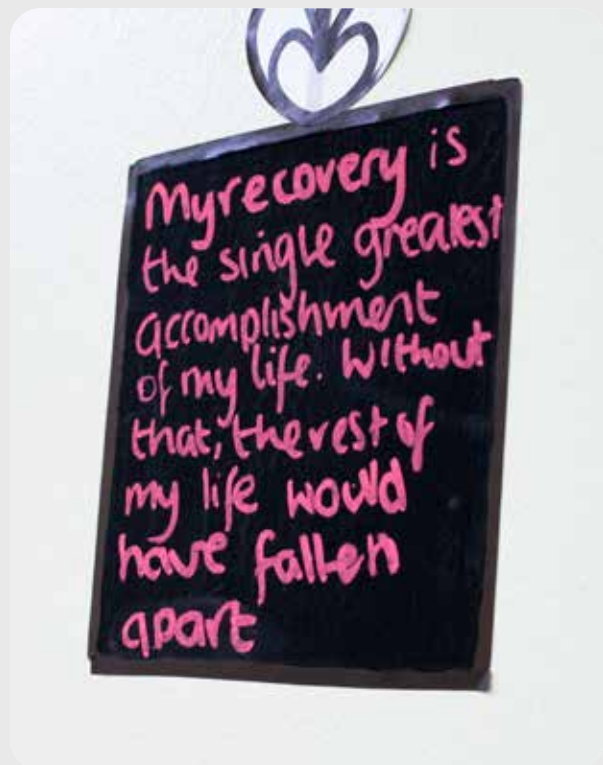 My recovery is
the single greatest
accomplishment
of my life. Without
that, the rest of
my life would
have fallen
apart